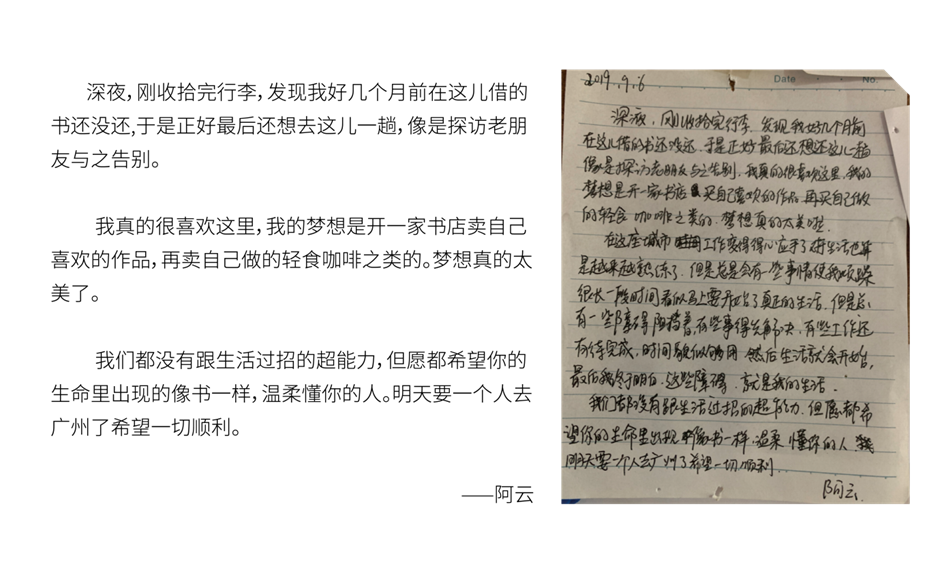 深夜，刚收拾完行李，发现我好几个月前在这儿借的
书还没还,于是正好最后还想去这儿一趟，像是探访老朋
友与之告别。
我真的很喜欢这里，我的梦想是开一家书店卖自己
喜欢的作品，再卖自己做的轻食咖啡之类的。梦想真的太
美了。
我们都没有跟生活过招的超能力，但愿都希望你的
生命里出现的像书一样，温柔懂你的人。明天要一个人去
广州了希望一切顺利。
——阿云
Date No.
2019.9.6
深夜，刚收拾完行李，发现我好几个月前
在这儿借的书还没还，于是正好最后还想还这儿一趟
像是探访老朋友与之告别，我真的很喜欢这里，我的
梦想是开一家书店 买自己喜欢的作品，再买自己做
的轻食 咖啡之类的，梦想真的太美啦，
在这座城市 工作变得得心应手了 生活也算
是越来越熟练了，但是总是会有一些事情使我烦躁
很长一段时间看似马上要开始了真正的生活，但是总
有一些障碍阻挡着，有些事得去解决，有些工作还
有待完成，时间貌似够用 然后生活就会开始，
最后我终于明白，这些障碍，就是我的生活.
我们都没有跟生活过招的超能力，但愿都希
望你的生命里出现 像书一样，温柔 懂你的人，我
明天要一个人去广州了希望一切顺利
阿云